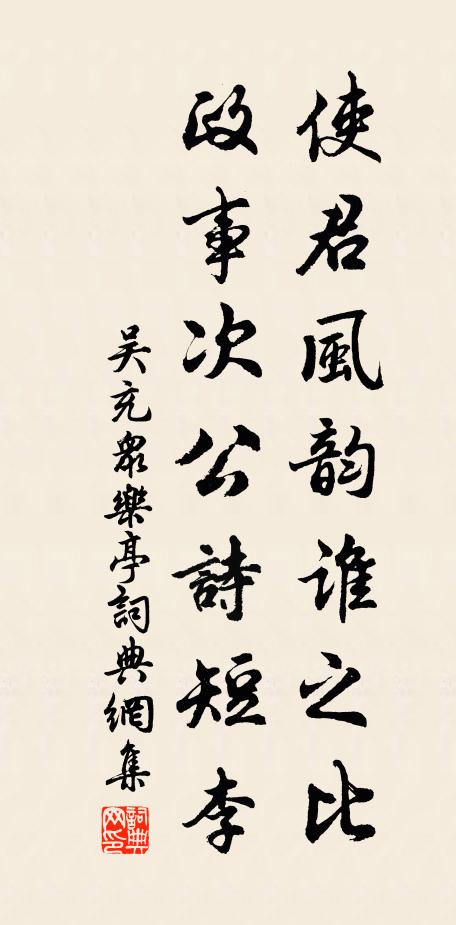 使君風韵誰之比
政事次公詩短李
吴充眾樂亭詞典網集
詞典网印